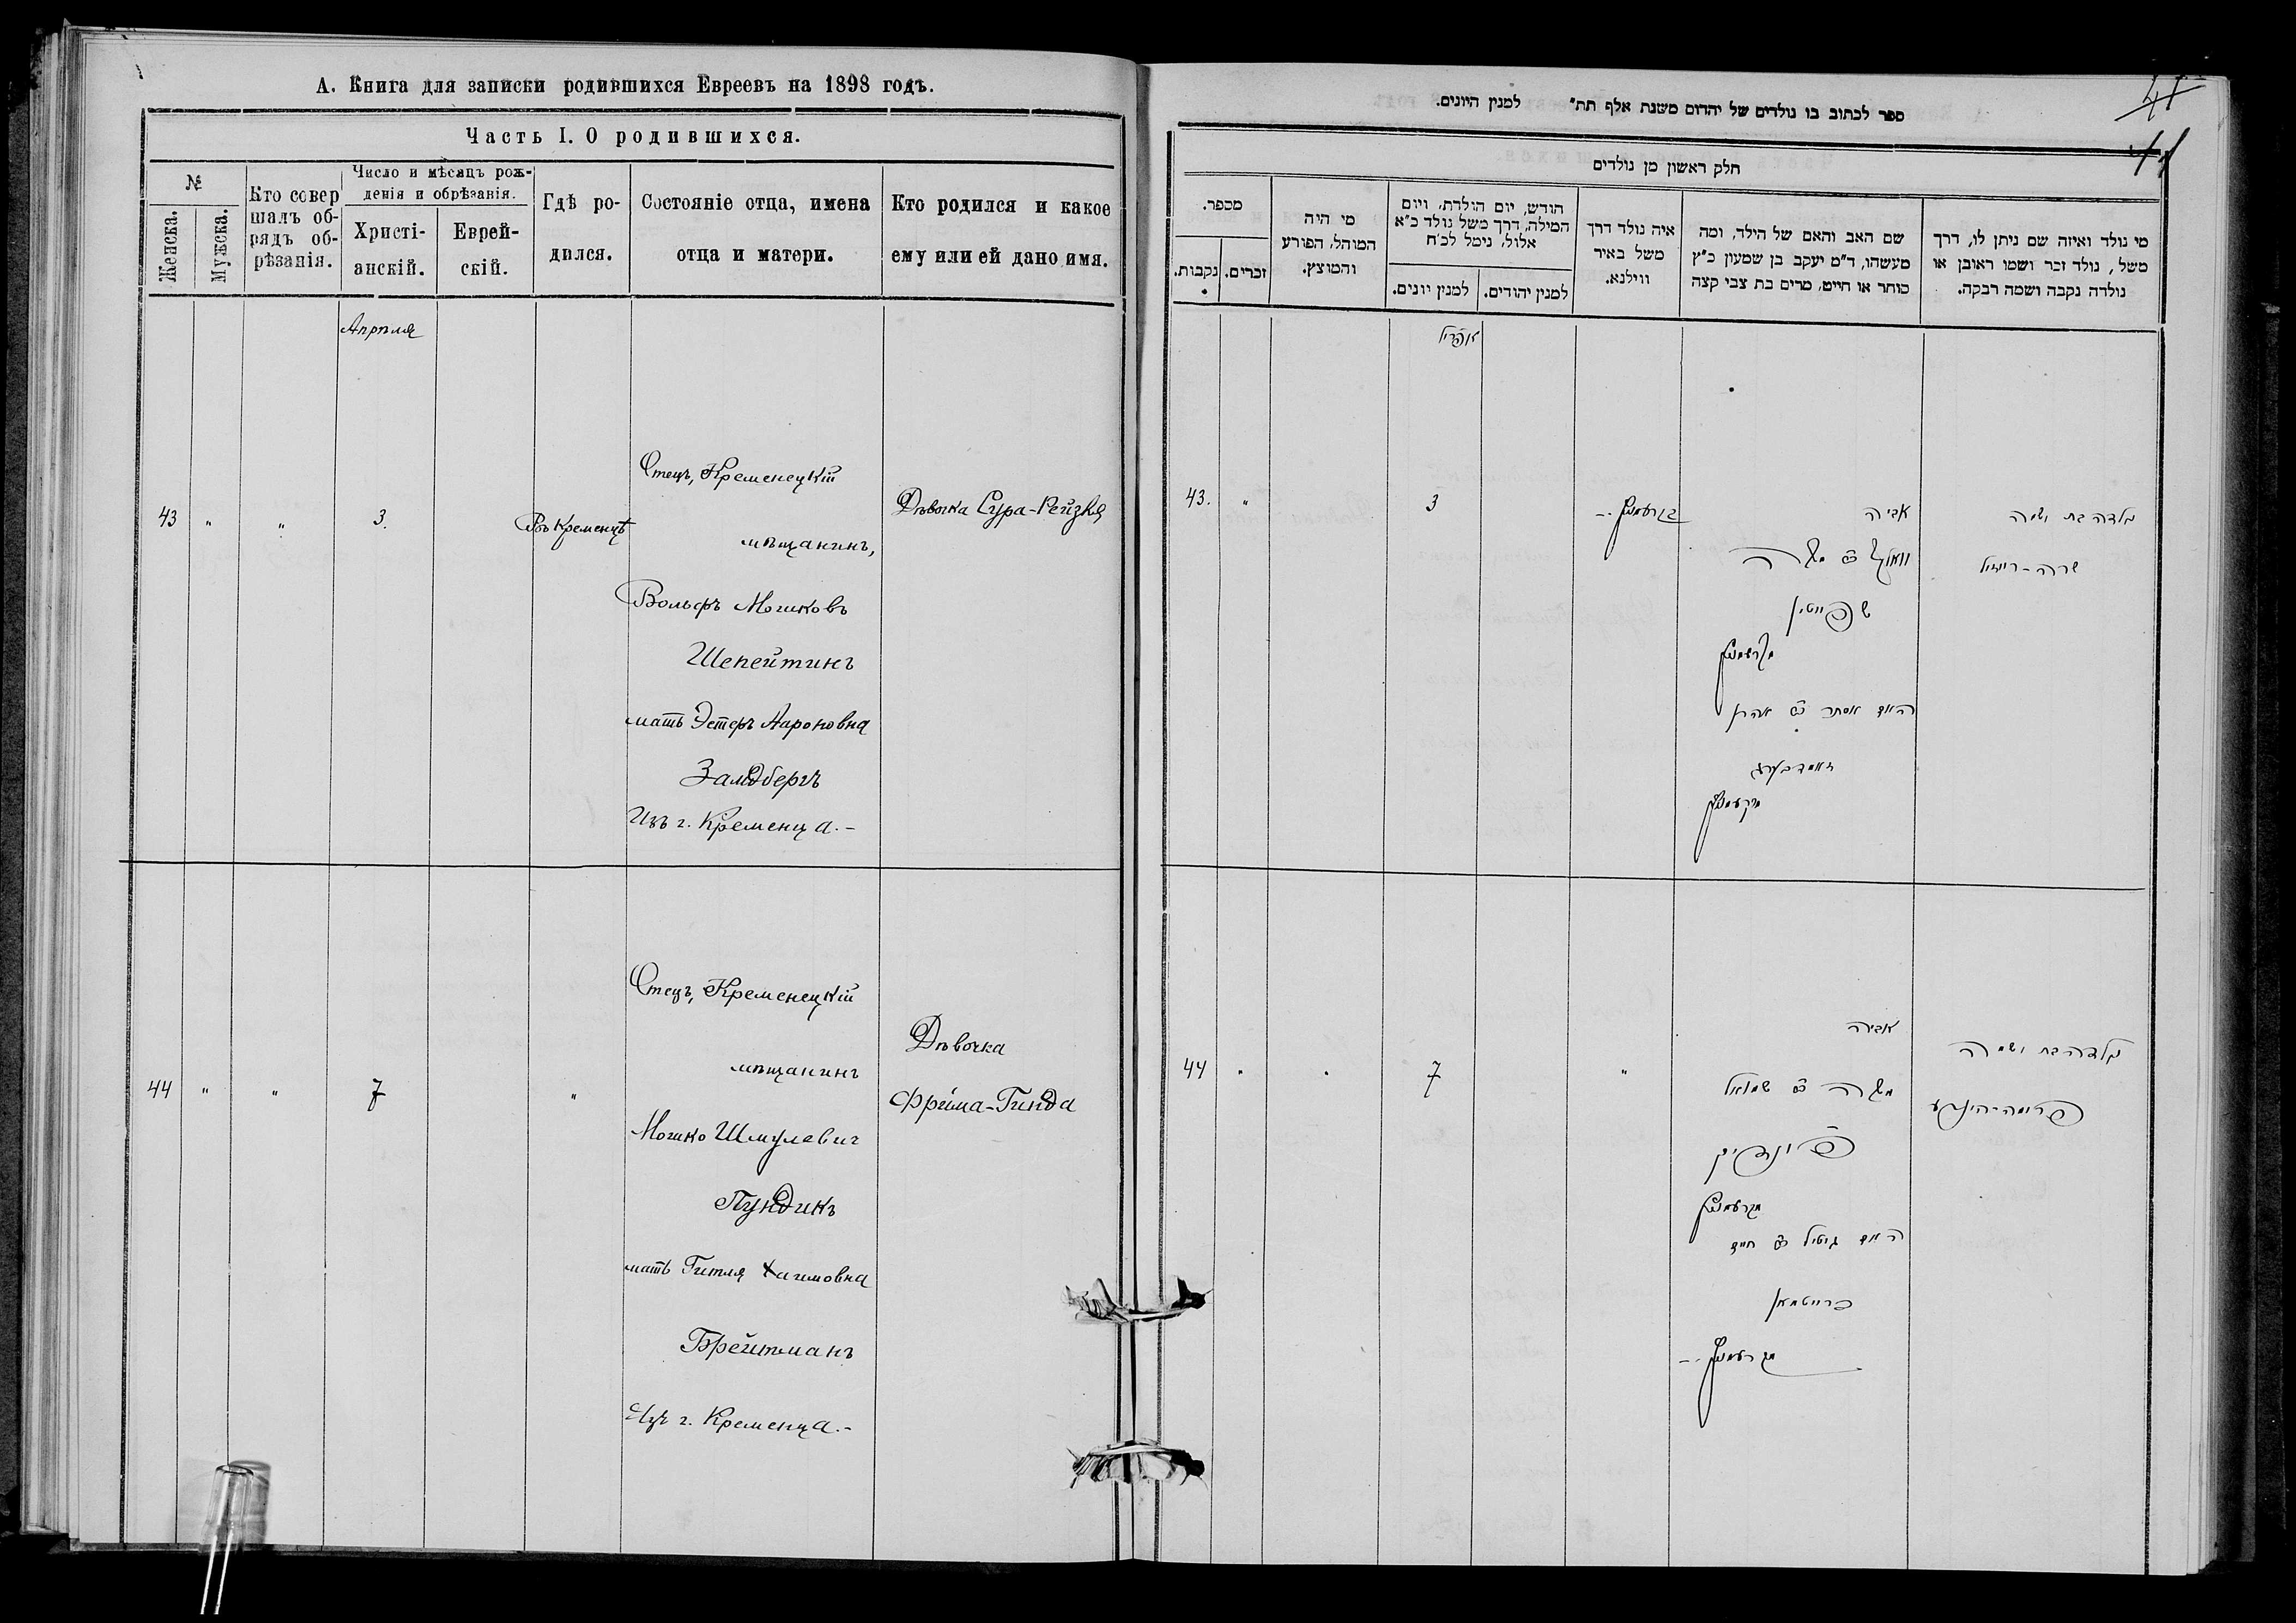 А. Книга для записки родившихся Евреевъ на 1898 годъ.
Часть I. О родившихся.
№
Женска.
Мужска.
Кто совер
шалъ об-
рядъ об-
рѣзанія.
Число и мѣсяцъ рож-
денія и обрѣзанія.
Христі-
анскій.
Еврей-
скій.
Гдѣ ро-
дился.
Состояніе отца, имена
отца и матери.
Кто родился и какое
ему или ей дано имя.
Апрѣля
43 " " 3. Въ Кременцѣ
Отецъ, Кременецкій
мѣщанинъ,
Вольфъ Мошковъ
Шепейтинъ
мать Эстеръ Аароновна
Залдбергъ
Изъ г. Кременца.-
Дѣвочка Сура-Рейзля
44 " " 7 "
Отецъ, Кременецкій
мѣщанинъ
Мошко Шмулевич
Пундикъ
мать Гитля Хаимовна
Брейтманъ
Изъ г. Кременца.-
Дѣвочка
Фрима-Гинда
ספר לכתוב בו נולדים של יהדום משנת אלף תת" למנין היונים.
41
חלק ראשון מן נולדים
מספר.
נקבות.
זכרים.
מי היה
המוהל, הפורע
והמוצץ.
חודש, יום הולדת, ויום
המילה, דרך משל נולד כ"א
אלול, נימל לכ"ח
למנין יונים.
למנין יהודים.
איה נולד דרך
משל באיר
ווילנא.
שם האב והאם של הילד, ומה
מעשהו, ד"מ יעקב בן שמעון כ"ץ
סוחר או חייט, מרים בת צבי קצה
מי נולד ואיזה שם ניתן לו, דרך
משל, נולד זכר ושמו ראובן או
נולדה נקבה ושמה רבקה.
אפריל
43. " 3
אביה
וואלף ב"ר משה
שפייטין
האם אסתר ב"ר אהרן
זאמדבערג
נולדה בת ושמה
שרה-רייזיל
44 " " 7 "
אביה
משה ב"ר שמואל
פונדיק
האם גיטיל ב"ר חיים
ברייטמאן
נולדה בת ושמה
פרימה-הינדע